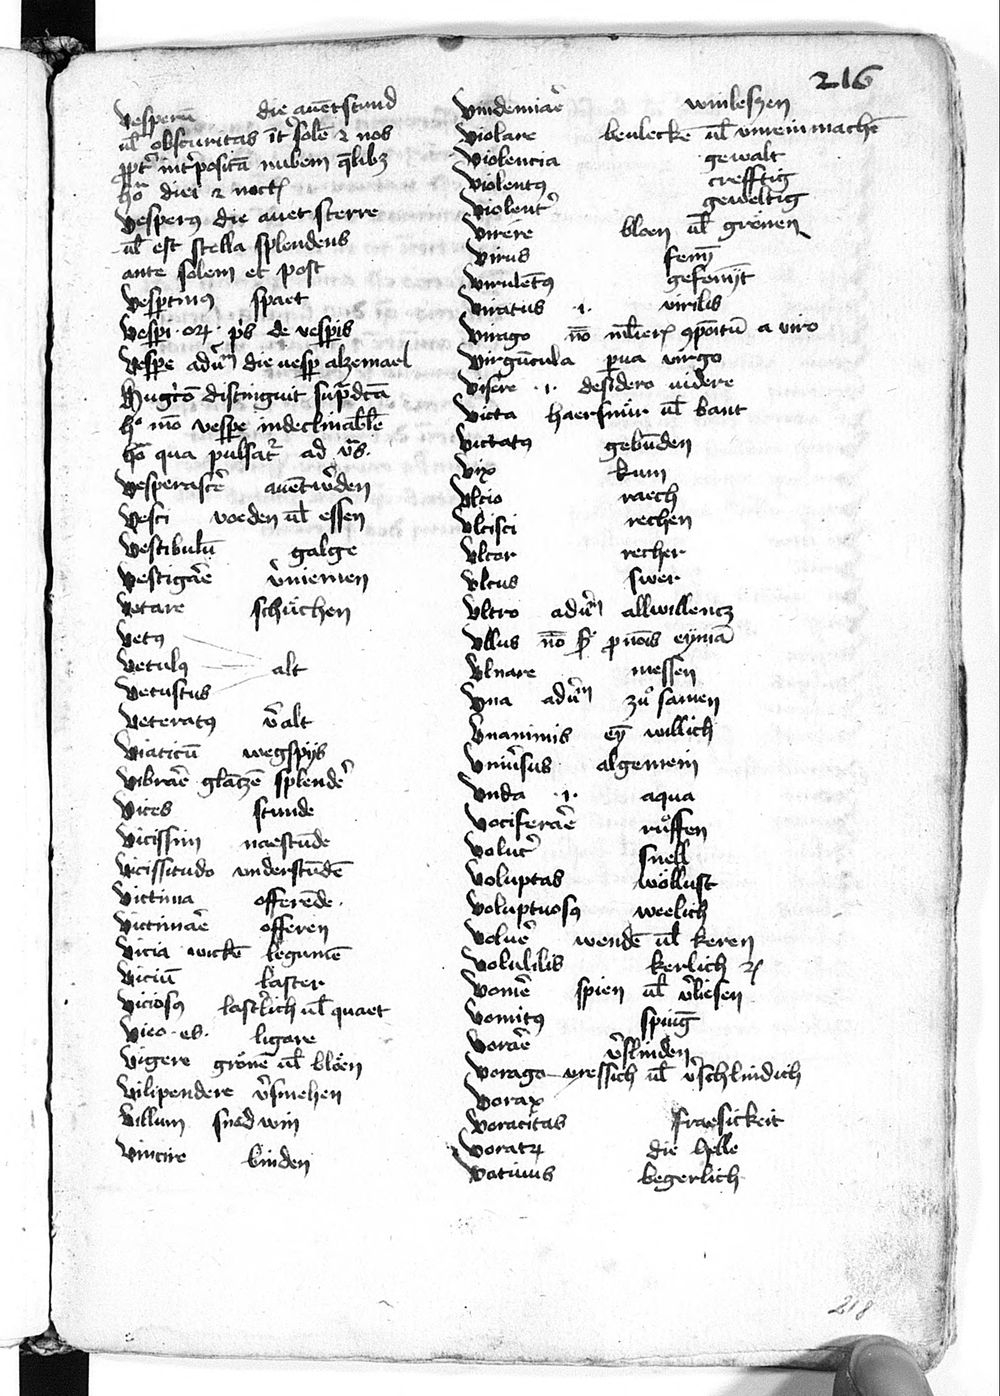 216
Vesperū die auētstund
ul̄ obscuritas īt solē 2 nos
ꝓpt̄ int̄positā nubem q̄libꝫ
hō diei 2 noct
Vesperꝰ die auet sterre
ul̄ est stella splendens
ante solem et post
Vesꝑtinꝰ spaet
Vesꝑi ·orꝝ· ps de vesꝑis
Vesꝑe adū die vesꝑ alzemael
Hugō distinguit sup̄dcā
hº mō vesꝑe indeclinabl̄e
hō qua pulsat᷑ ad v̄s.
Vesperascē auētw̄den
Vesci voeden ul̄ essen
Vestibulū galge
Vestigar̄e v̄niemen
Vetare schuͤchen
Vetꝰ
Vetulꝰ alt
Vetustus
Veteratꝰ v̄alt
Viaticū wegspijs
Vibrar̄e glātzē splendē
Vices stunde
Vicissim naestūde
Vicissitudo understūdē
Victima offerēde.
Victimar̄e offeren
Vicia wickē legumē
Viciū laster
Viciosꝰ lastl̄ich ul̄ quaet
Vieo ·es· ligare
Vigere groͤnē ul̄ bloͤen
Vilipendere v̄smehen
Villum snod win
Vincire binden
Vindemiar̄e winleszen
Violare bevlecke ul̄ unreinmachē
Violencia gewalt
Violentꝰ crefftig
Violent̄ geweltig
Virere bloen ul̄ groͤnen
Virus fenij̄
Virulētꝰ gefenijt
Viratus ·i· virilis
Virago nō ml̄ierꝝ ꝯpoitū a viro
Virgūcula ꝑua virgo
Visere ·i· desidero videre
Victa haersnuͤr ul̄ bant
Victatꝰ gebūden
Vix kum
Vltio raech
Vlcisci rechen
Vltor recher
Vlcus swer
Vltro adū allwillencz
Vllus nō ꝓnoīs eymā
Vlnare messen
Vna adū zuͦ samen
Vnanimis eȳ willich
Vniūsus algemein
Vnda ·i· aqua
Vociferar̄e ruͦffen
Voluc̄ snell
Voluptas wollust
Voluptuosꝰ weelich
Volue͞ wendē ul̄ keren
Volulilis kerlich ꝛc
Vomē spien ul̄ v̄liesen
Vomitꝰ spiūg
Vorar̄e v̄slinden
Vorago vressich ul̄ v̄schlindich
Vorax
Voracitas fraesickeit
Voratꝝ die helle
Votiuus begerlich
218